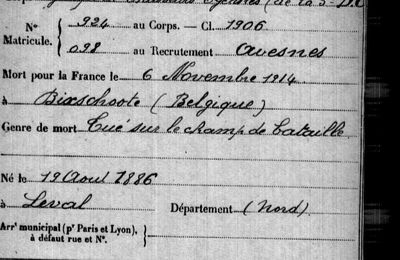 Cyclistes (de la 5e D.C
N° 924 au Corps. — Cl. 1906
Matricule. 098 au Recrutement Avesnes
Mort pour la France le 6 Novembre 1914
à Bixschoote (Belgique)
Genre de mort Tué sur le champ de bataille
Né le 19 Aout 1886
à Leval Département (Nord)
Arrt municipal (pr Paris et Lyon),
à défaut rue et N°.